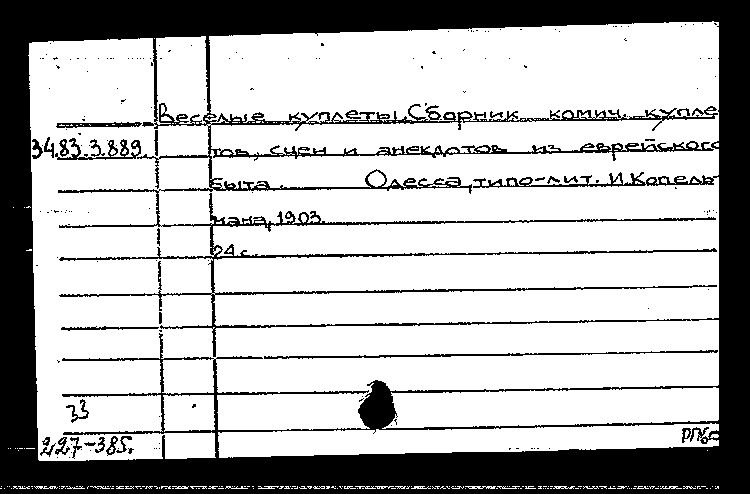 Веселые куплеты. Сборник комич. купле
34.83.3.889. тов, сцен и анекдотов из еврейского
быта. Одесса, типо-лит. И. Копель
мана, 1903.
24 с.
33
227-385.